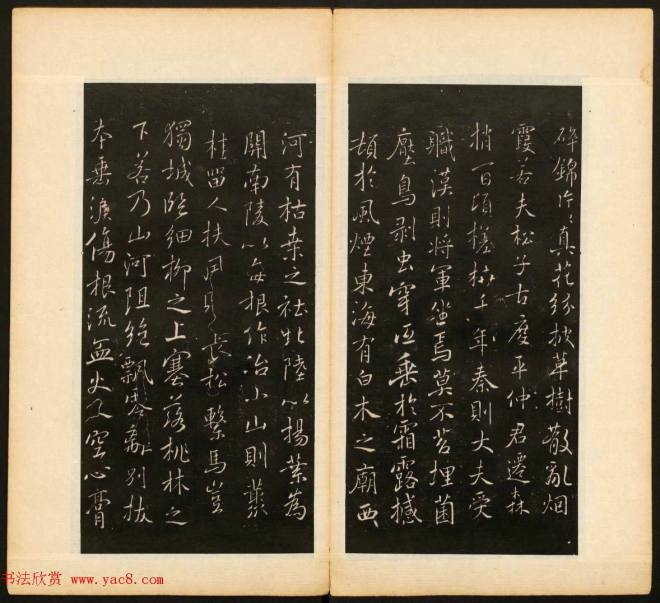 碎錦片〻真花紛披草樹散亂烟
霞若夫松子古度平仲君遷森
梢百頃槎枿千年秦則大夫受
職漢則將軍坐焉莫不苔埋菌
壓鳥剥虫穿低垂於霜露撼
頓於風煙東海有白木之廟西
河有枯桒之社北陸以楊葉為
關南陵以梅根作冶小山則叢
桂留人扶風則長松繫馬豈
獨城臨細柳之上塞落桃林之
下若乃山河阻絶飄零離別拔
本垂淚傷根流血火入空心膏
书法欣赏 www.yac8.com